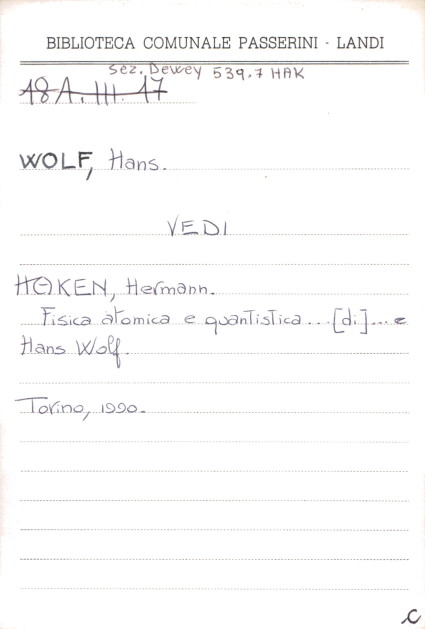 BIBLIOTECA COMUNALE PASSERINI - LANDI
Sez. Dewey 539.7 HAK
18A. III. 17
WOLF, Hans.
VEDI
HOKEN, Hermann.
Fisica atomica e quantistica... [di]... e
Hans Wolf.
Torino, 1990.
C